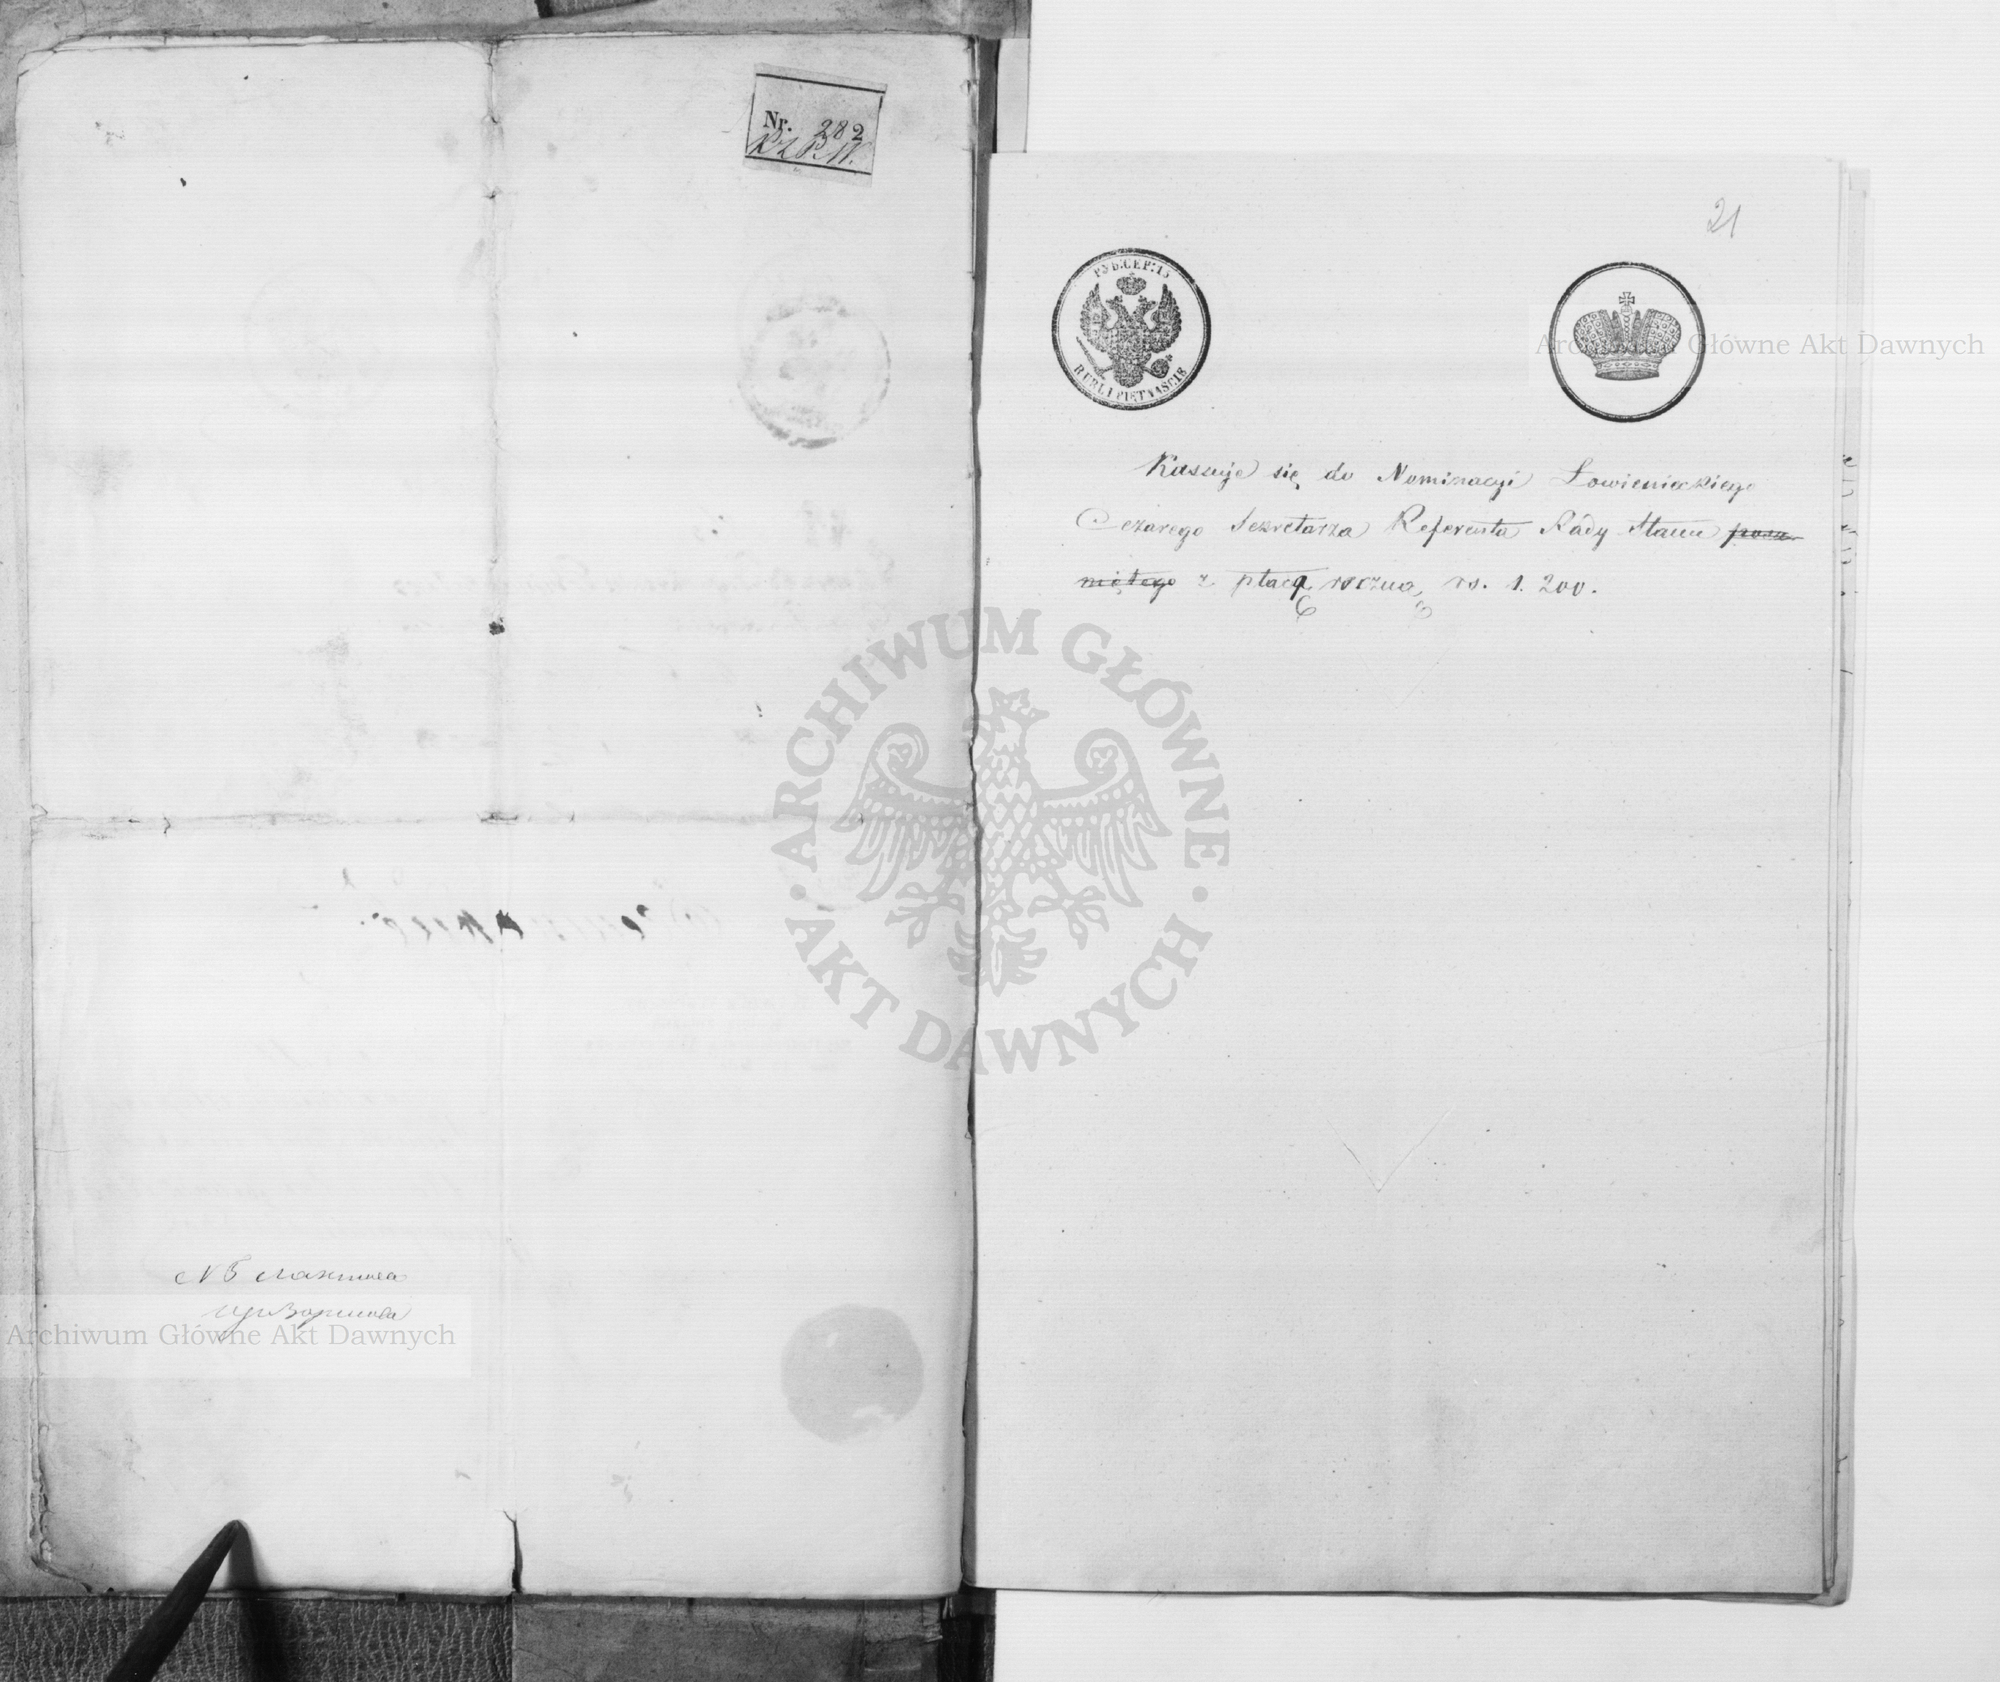 Nr. 282
21
РУБ: СЕР: 15
RUBLI PIĘTNAŚCIE
Kassuje się do Nominacyi Łowienieckiego
Cezarego Sekretarza Referenta Rady Stanu
z płacą roczną rs. 1.200.
NB
ARCHIWUM GŁÓWNE AKT DAWNYCH
Archiwum Główne Akt Dawnych
Archiwum Główne Akt Dawnych